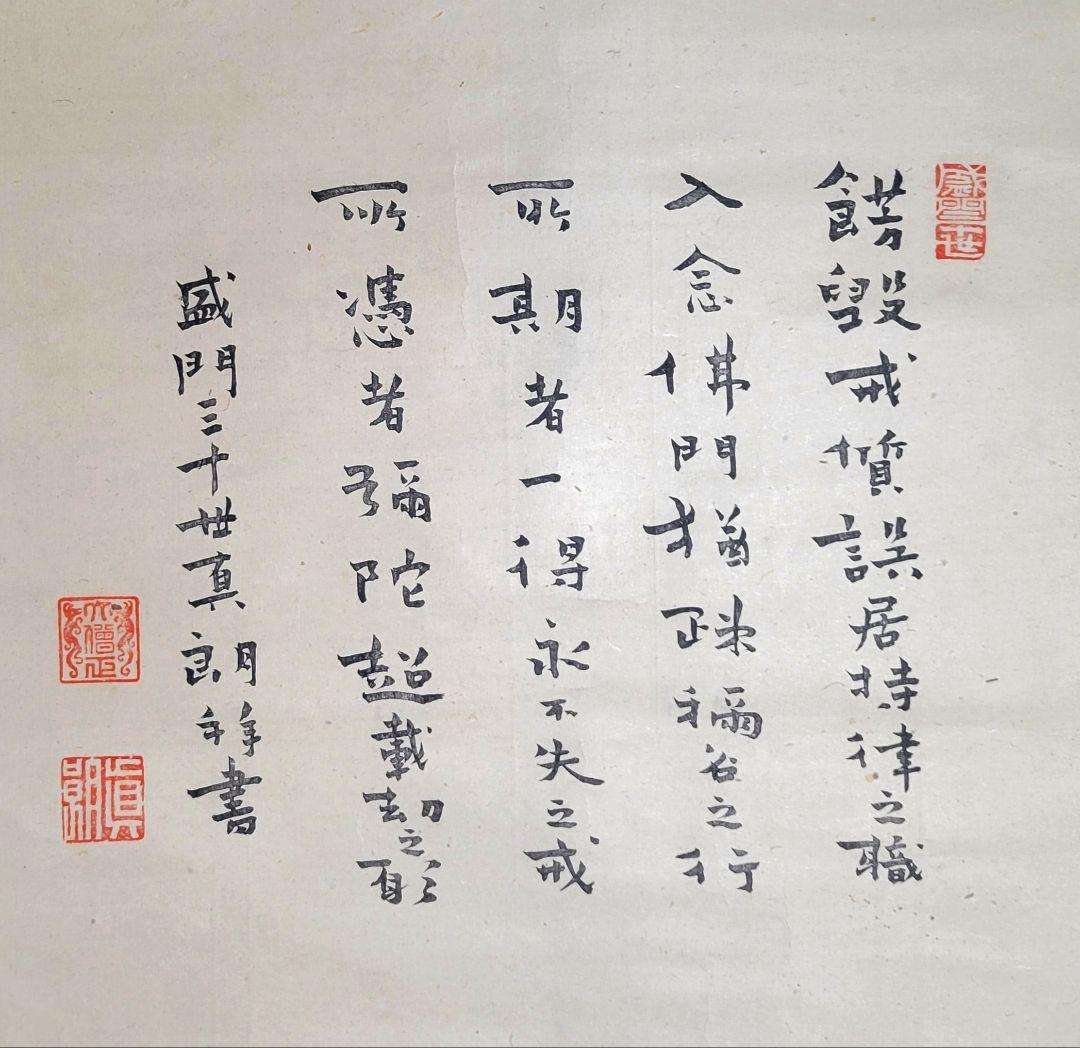 餝毀戒質誤居持律之職
入念佛門猶疎稱名之行
所期者一得永不失之戒
所憑者彌陀超載劫之願
盛門三十世真朗拜書
大僧正
真朗